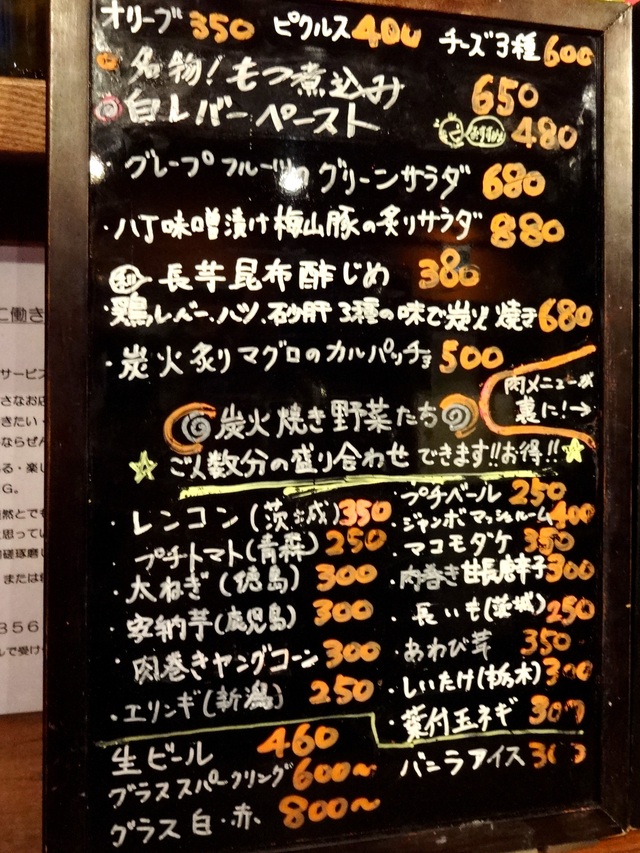 オリーブ 350 ピクルス 400 チーズ3種 600
名物!もつ煮込み 650
白レバーペースト おすすめ 480
・グレープフルーツのグリーンサラダ 680
・八丁味噌漬け梅山豚の炙りサラダ 880
長芋昆布酢じめ 380
・鶏レバー、ハツ、砂肝 3種の味で炭火焼き 680
・炭火炙りマグロのカルパッチョ 500
肉メニューが
裏に!→
炭火焼き野菜たち
☆ご人数分の盛り合わせできます!!お得!!☆
・レンコン(茨城) 350
・プチトマト(青森) 250
・太ねぎ(徳島) 300
・安納芋(鹿児島) 300
・肉巻きヤングコーン 300
・エリンギ(新潟) 250
・プチベール 250
・ジャンボマッシュルーム 400
・マコモダケ 350
・肉巻き甘長唐辛子 300
・長いも(茨城) 250
・あわび茸 350
・しいたけ(栃木) 300
・葉付玉ネギ 300
生ビール 460
グラススパークリング 600〜
グラス白・赤 800〜
バニラアイス 300
に働き
サービス
さなお店
きたい・
ならぜん
る・楽し
G。
然とでも
思ってい
磋琢磨し
または
356
んで受け